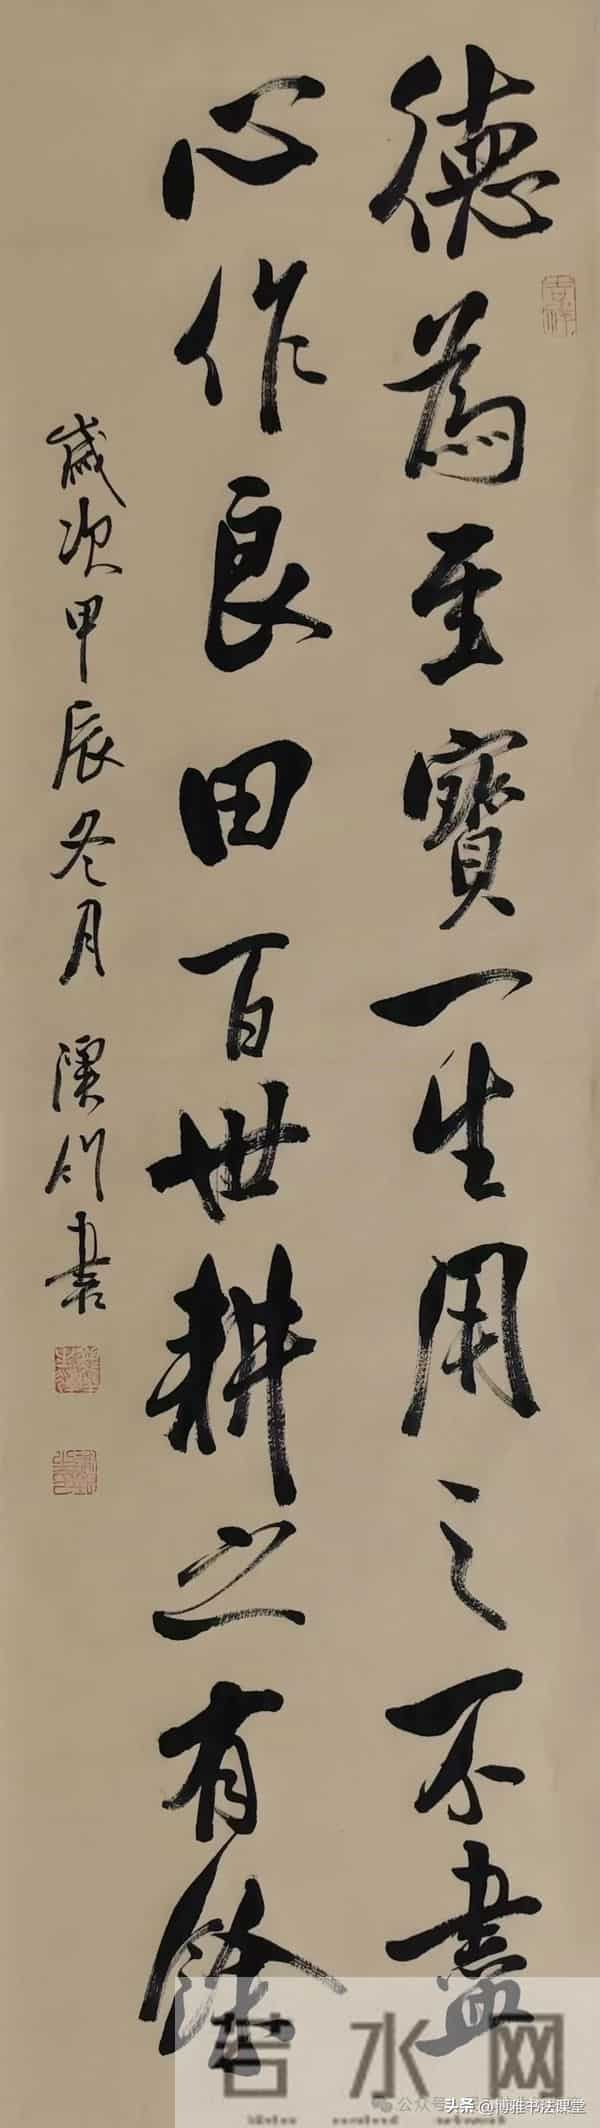 德為至寶一生用之不盡
心作良田百世耕之有餘
歲次甲辰冬月 溪川書
吉祥
若水网
公众号
头条@博雅书法课堂